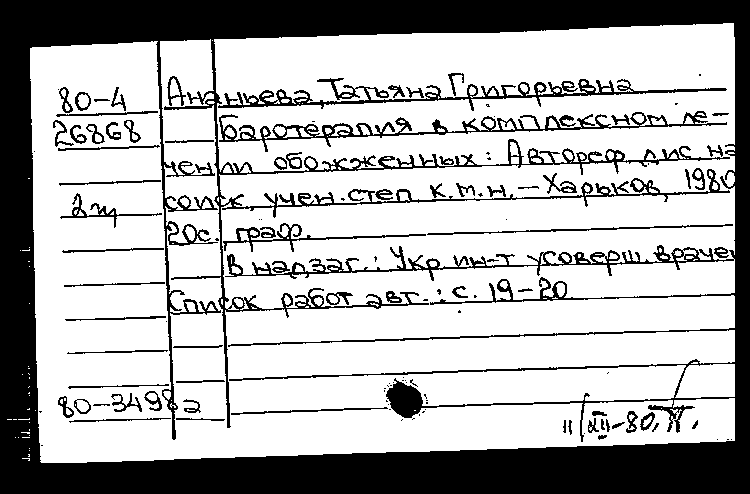 80-4 Ананьева, Татьяна Григорьевна
26868 Баротерапия в комплексном ле-
чении обожженных: Автореф. дис. на
соиск. учен. степ к.м.н. — Харьков, 1980
20с., граф.
В надзаг.: Укр ин-т усоверш. врачей
Список работ авт.: с. 19-20
80-34982
11/XII-80.